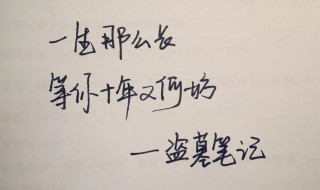 一生那么长
等你十年又何妨
一盗墓笔记